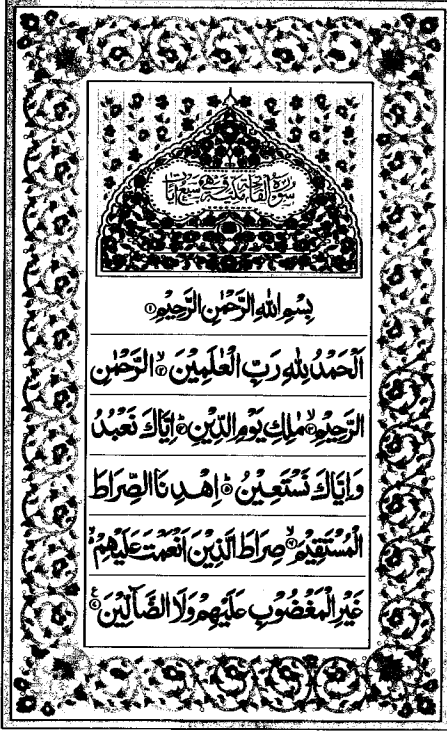 سورة الفاتحة مكية وهي سبع آيات
بِسْمِ اللهِ الرَّحْمٰنِ الرَّحِيْمِ ۝١
اَلْحَمْدُ لِلّٰهِ رَبِّ الْعٰلَمِيْنَ ۝٢ۙ الرَّحْمٰنِ
الرَّحِيْمِ ۝٣ۙ مٰلِكِ يَوْمِ الدِّيْنِ ۝٤ؕ اِيَّاكَ نَعْبُدُ
وَاِيَّاكَ نَسْتَعِيْنُ ۝٥ؕ اِهْدِنَا الصِّرَاطَ
الْمُسْتَقِيْمَ ۝٦ۙ صِرَاطَ الَّذِيْنَ اَنْعَمْتَ عَلَيْهِمْ ۙ
غَيْرِ الْمَغْضُوْبِ عَلَيْهِمْ وَلَا الضَّآلِّيْنَ ۝٧ۧ